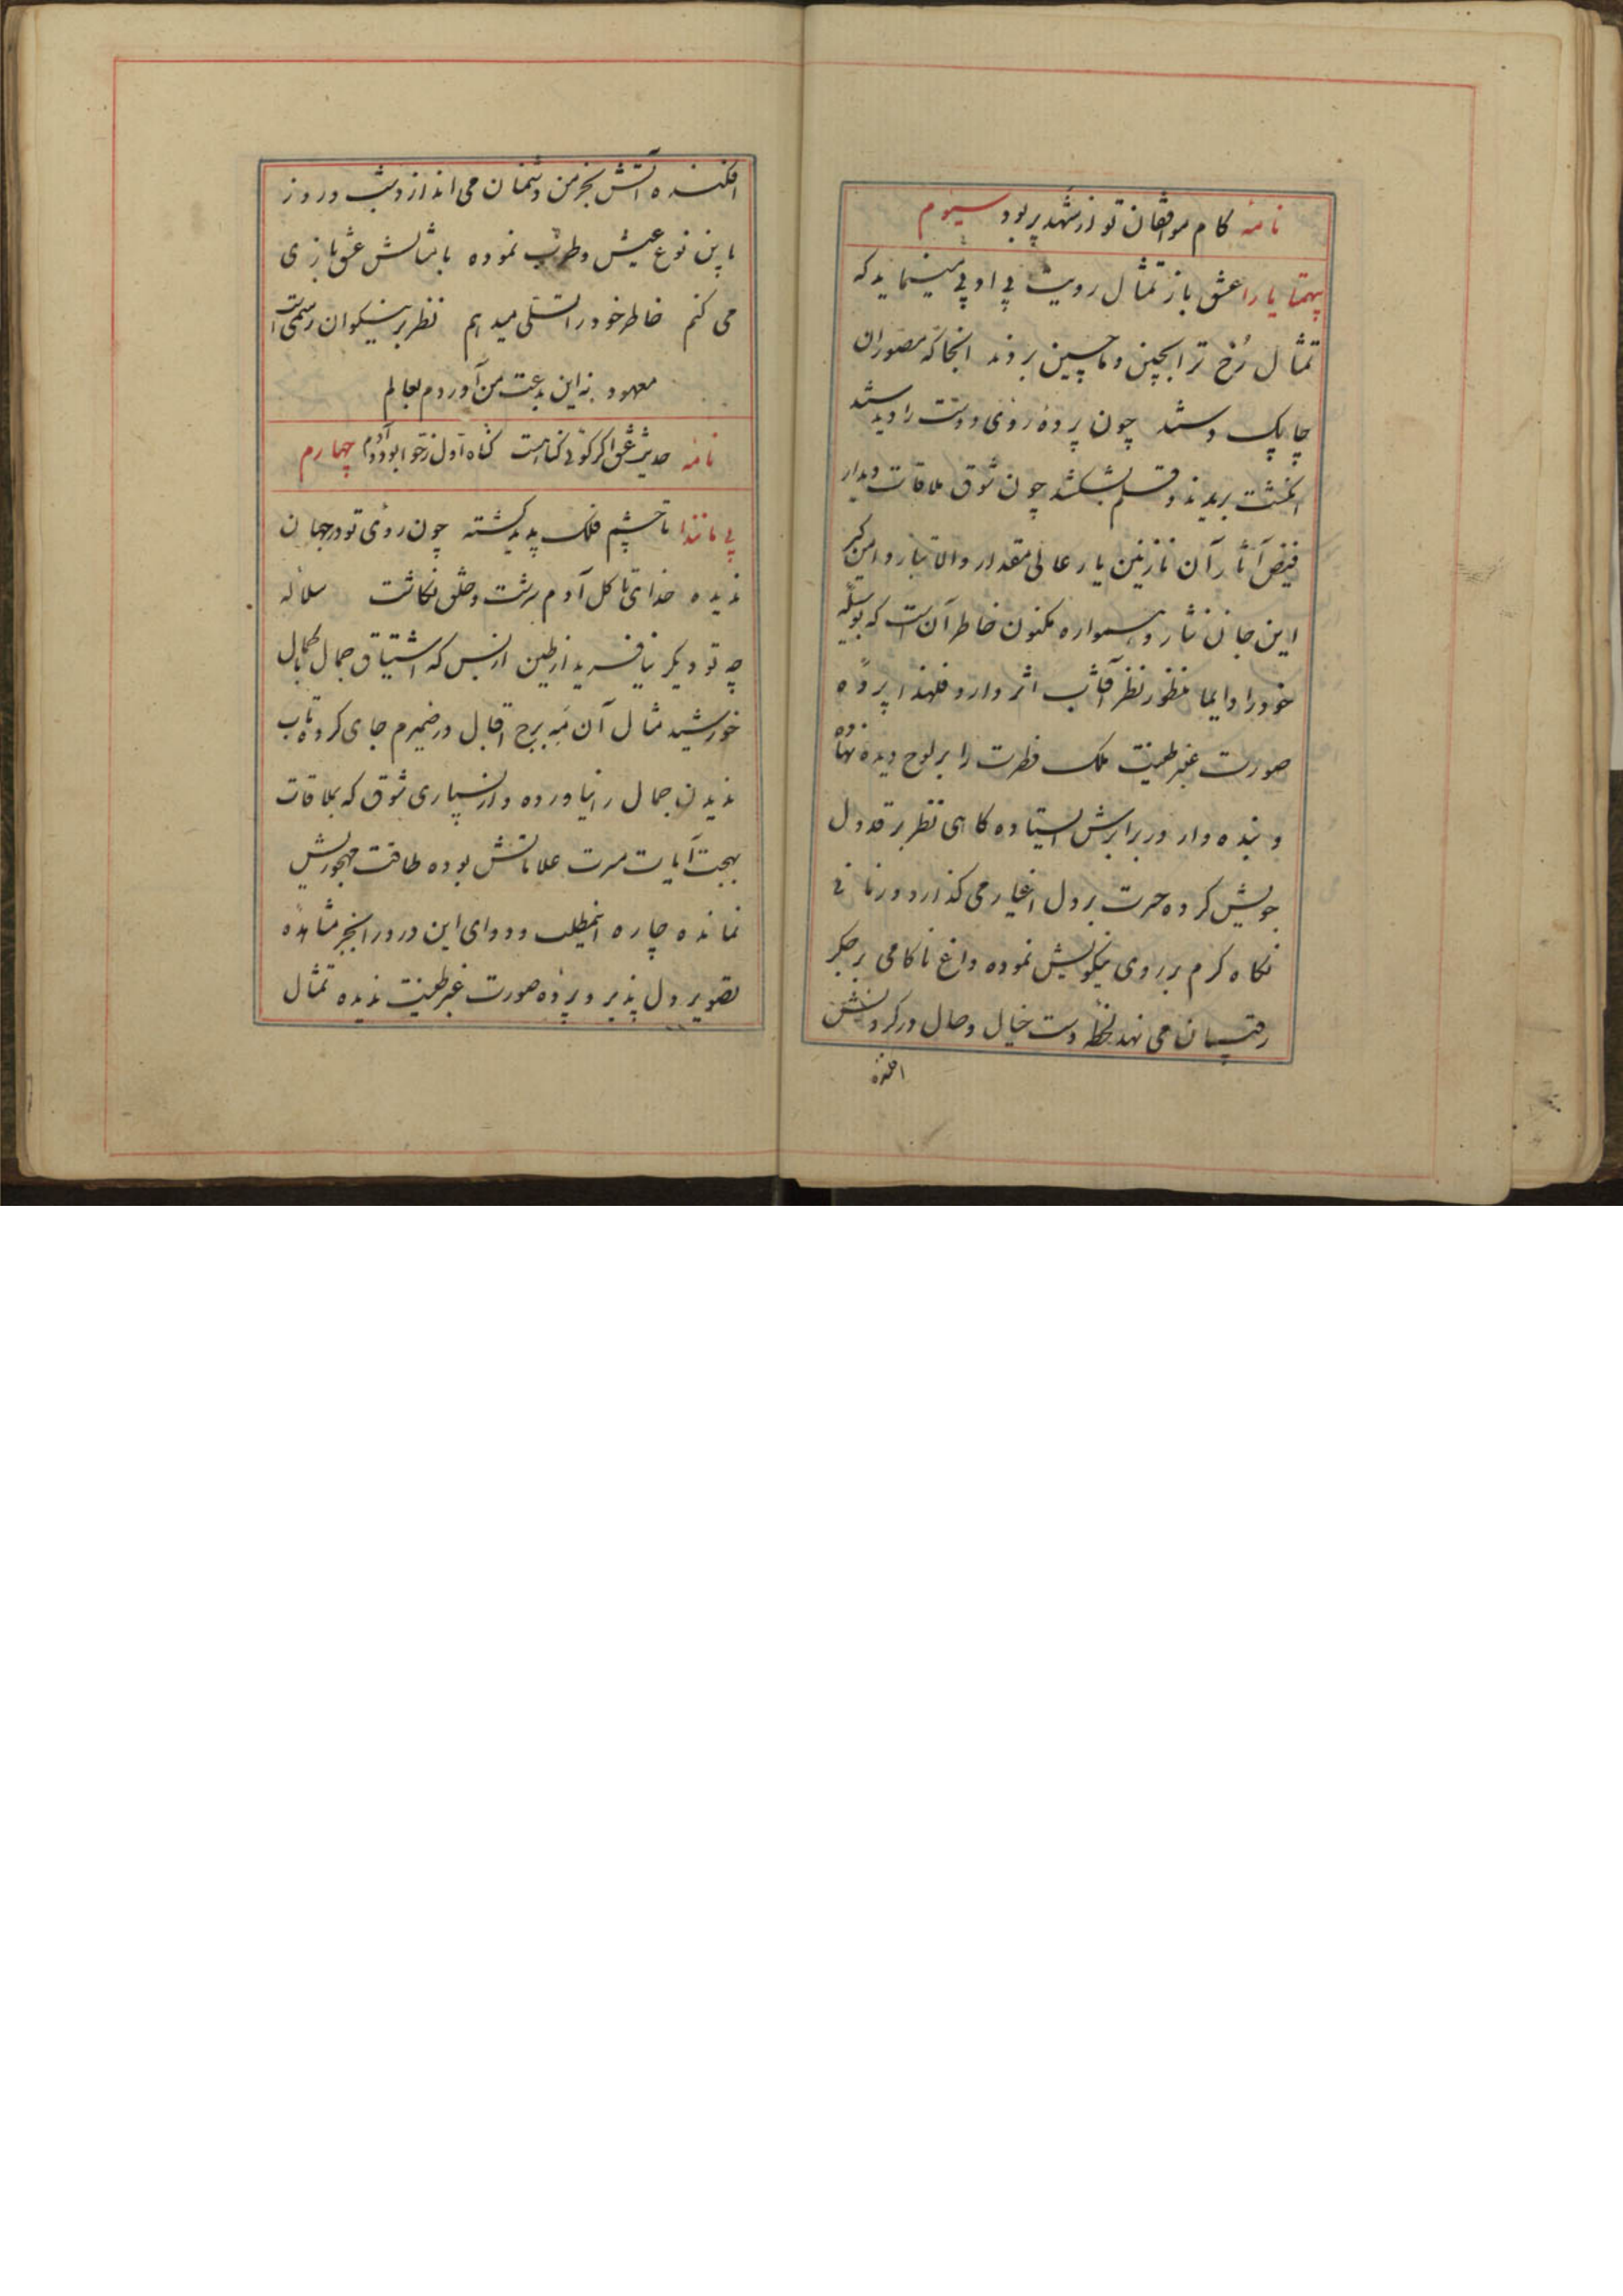 نامه کام موافقان تو از شهد پر بود سیوم
بیهمتا یارا عشق باز تمثال رویت پی او پی مینماید که
تمثال رخ ترا بچین و ماچین بردند انجا که مصوران
چابک دستند چون پرده روی دوست را دیدند
انگشت بریدند و قلم بشکستند چون شوق ملاقات دیدار
فیض آثار آن نازنین یار عالی مقدار والا تبار دامن گیر
این جان نثار و همواره مکنون خاطر آن است که بوسیله
خود را دایما منظور نظر آفتاب اثر دارد فلهذا پرده
صورت عنبر طینت ملک فطرت را بر لوح دیده نهاده
و بنده وار در برابرش ایستاده کاهی نظر بر قد دل
جویش کرده حسرت بر دل اغیار می کذارد و زمانی
نکاه کرم بر روی نیکویش نموده داغ ناکامی بر جکر
رقیبان می نهد لحظه دست خیال وصال در کردنش
افکنده
افکنده آتش بخرمن دشمنان می اندازد شب و روز
باین نوع عیش و طرب نموده با مثالش عشق بازی
می کنم خاطر خود را تسلی میدهم نظر بر نیکوان رسمی است
معهود نه این بدعت من آوردم بعالم
نامه حدیث عشق اکر کوئی کناهست کناه اول ز حوا بود و آدم چهارم
بی مانندا تا چشم فلک پدید کشته چون روی تو در جهان
ندیده خدای تا کل آدم سرشت و خلق نکاشت سلاله
چه تو دیکر نیافرید از طین از بس که اشتیاق جمال با کمال
خورشید مثال آن مه برج اقبال در ضمیرم جای کرده تاب
ندیدن جمال را نیاورده و از بسیاری شوق که بملاقات
بهجت آیات مسرت علاماتش بوده طاقت مهجوریش
نمانده چاره انمطلب و دوای این درد را بجز مشاهده
تصویر دل پذیر و پرده صورت عنبر طینت ندیده تمثال